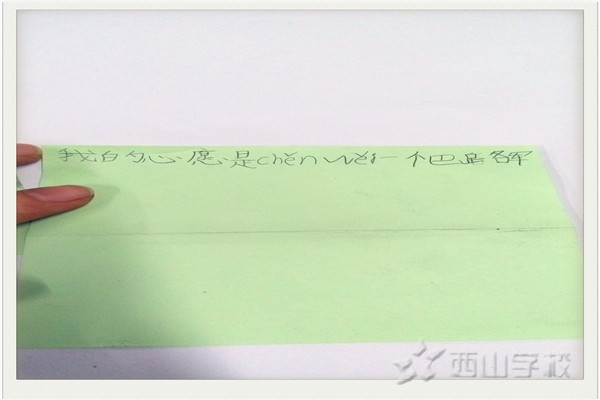 我的心愿是chěn wěi一个巴路军
西山学校